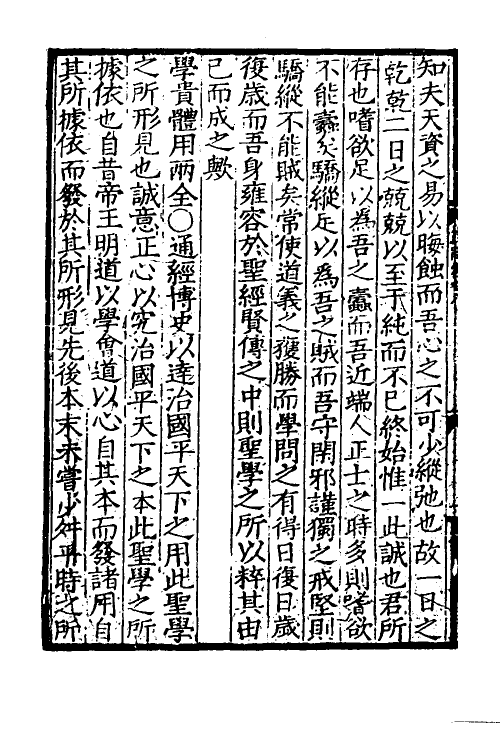 知夫天資之易以晦蝕而吾心之不可少縱弛也故一日之
乾乾二日之兢兢以至于純而不已終始惟一此誠也君所
存也嗜欲足以為吾之蠹而吾近端人正士之時多則嗜欲
不能蠹矣驕縱足以為吾之賊而吾守閑邪謹獨之戒堅則
驕縱不能賊矣常使道義之獲勝而學問之有得日復日歲
復歲而吾身雍容於聖經賢傳之中則聖學之所以粹其由
已而成之歟
學貴體用兩全○通經博史以達治國平天下之用此聖學
之所形見也誠意正心以究治國平天下之本此聖學之所
據依也自昔帝王明道以學會道以心自其本而發諸用自
其所據依而發於其所形見先後本末未嘗少舛平時之所